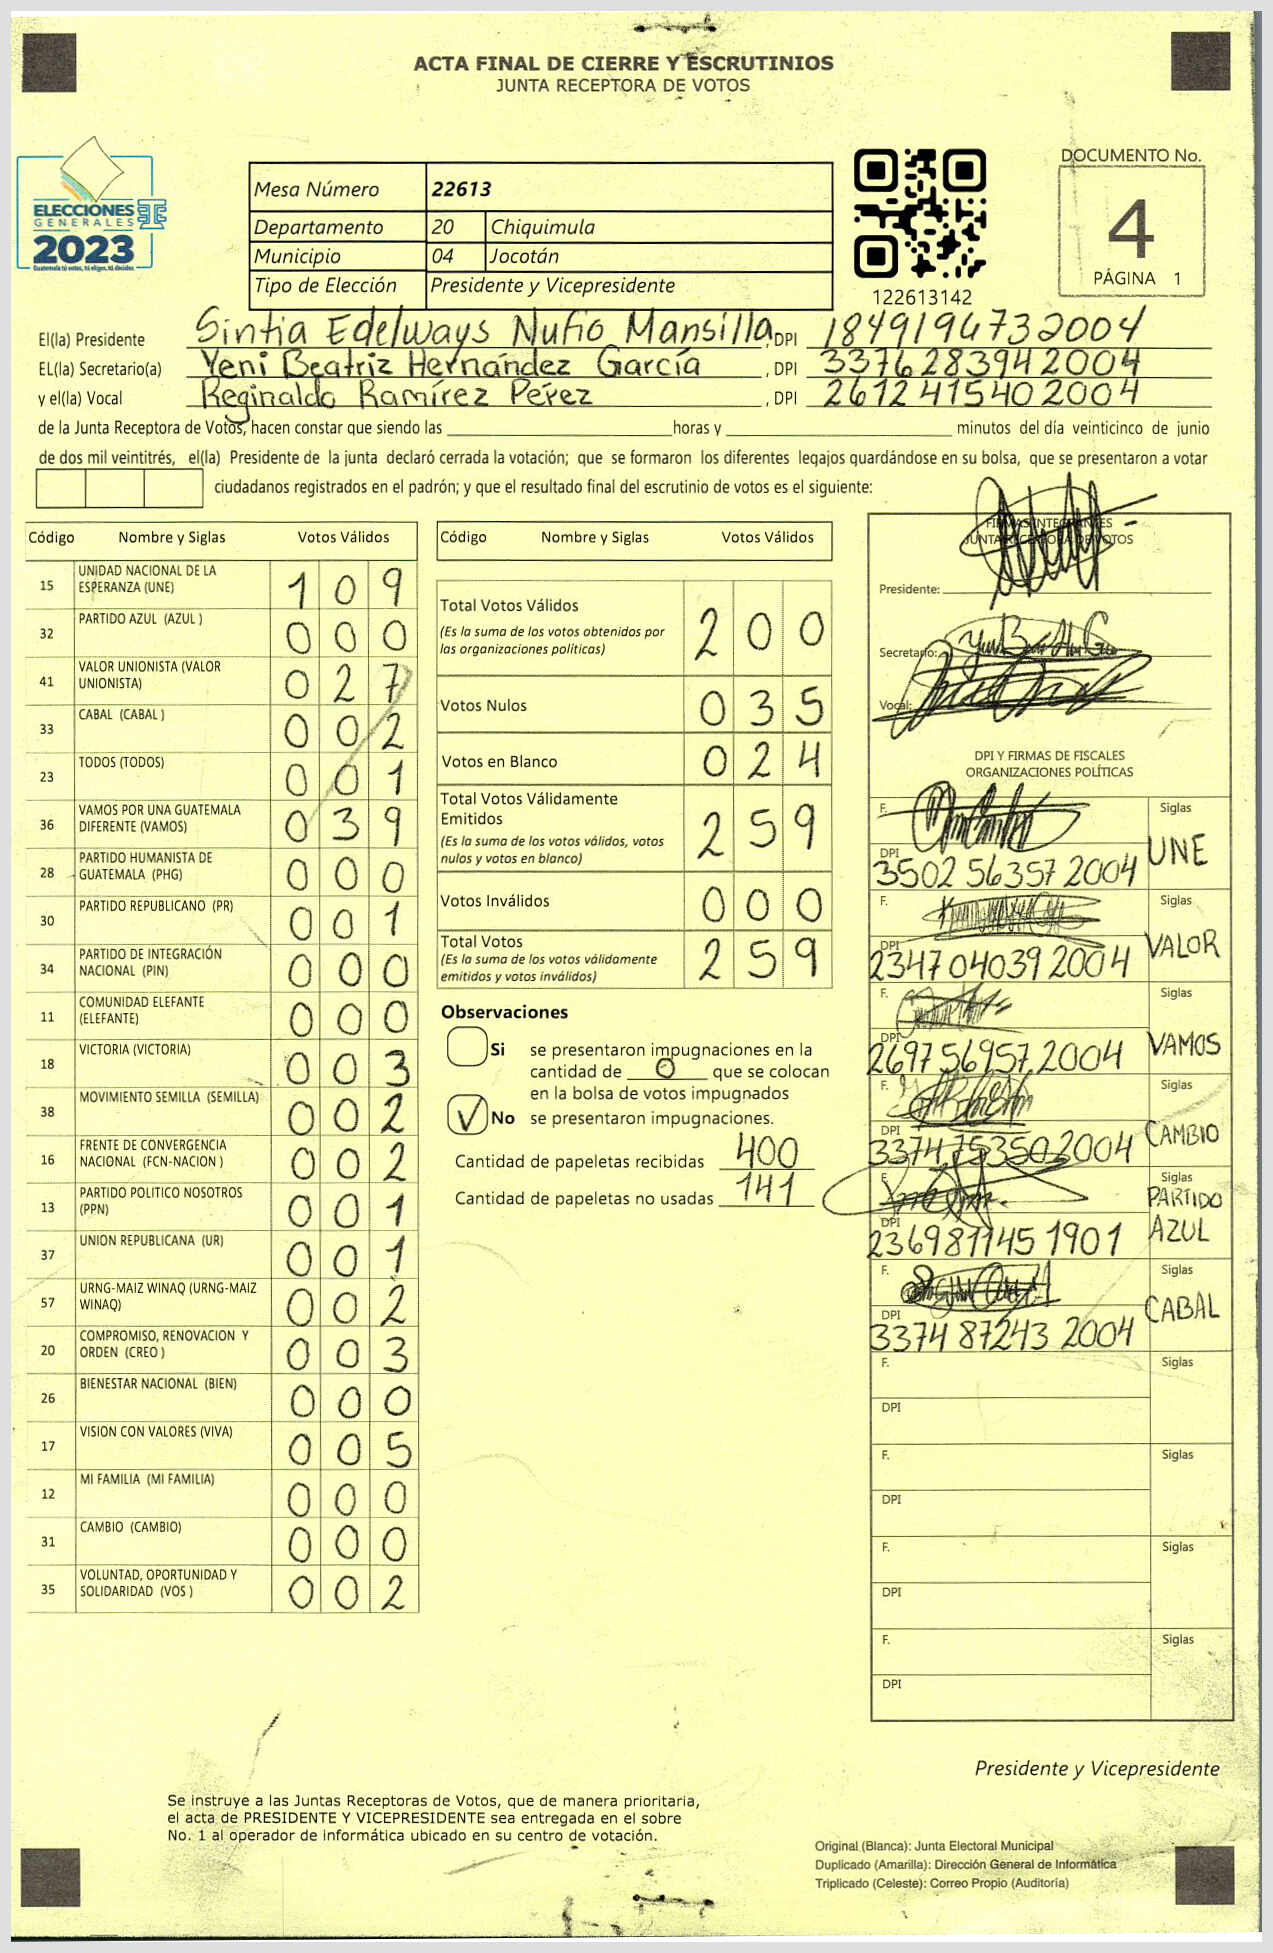 ACTA FINAL DE CIERRE Y ESCRUTINIOS
JUNTA RECEPTORA DE VOTOS
ELECCIONES
GENERALES
2023
Guatemala tú votas, tú eliges, tú decides.
Mesa Número 22613
Departamento 20 Chiquimula
Municipio 04 Jocotán
Tipo de Elección Presidente y Vicepresidente
122613142
DOCUMENTO No.
4
PÁGINA 1
El(la) Presidente Sintia Edelways Nufio Mansilla, DPI 1849194732004
EL(la) Secretario(a) Yeni Beatriz Hernández García, DPI 3376283942004
y el(la) Vocal Reginaldo Ramírez Pérez, DPI 2612415402004
de la Junta Receptora de Votos, hacen constar que siendo las horas y minutos del día veinticinco de junio
de dos mil veintitrés, el(la) Presidente de la junta declaró cerrada la votación; que se formaron los diferentes legajos guardándose en su bolsa, que se presentaron a votar
ciudadanos registrados en el padrón; y que el resultado final del escrutinio de votos es el siguiente:
Código Nombre y Siglas Votos Válidos
15 UNIDAD NACIONAL DE LA ESPERANZA (UNE) 109
32 PARTIDO AZUL (AZUL ) 000
41 VALOR UNIONISTA (VALOR UNIONISTA) 027
33 CABAL (CABAL ) 002
23 TODOS (TODOS) 001
36 VAMOS POR UNA GUATEMALA DIFERENTE (VAMOS) 039
28 PARTIDO HUMANISTA DE GUATEMALA (PHG) 000
30 PARTIDO REPUBLICANO (PR) 001
34 PARTIDO DE INTEGRACIÓN NACIONAL (PIN) 000
11 COMUNIDAD ELEFANTE (ELEFANTE) 000
18 VICTORIA (VICTORIA) 003
38 MOVIMIENTO SEMILLA (SEMILLA) 002
16 FRENTE DE CONVERGENCIA NACIONAL (FCN-NACION ) 002
13 PARTIDO POLITICO NOSOTROS (PPN) 001
37 UNION REPUBLICANA (UR) 001
57 URNG-MAIZ WINAQ (URNG-MAIZ WINAQ) 002
20 COMPROMISO, RENOVACION Y ORDEN (CREO ) 003
26 BIENESTAR NACIONAL (BIEN) 000
17 VISION CON VALORES (VIVA) 005
12 MI FAMILIA (MI FAMILIA) 000
31 CAMBIO (CAMBIO) 000
35 VOLUNTAD, OPORTUNIDAD Y SOLIDARIDAD (VOS ) 002
Código Nombre y Siglas Votos Válidos
Total Votos Válidos 200
(Es la suma de los votos obtenidos por
las organizaciones políticas)
Votos Nulos 035
Votos en Blanco 024
Total Votos Válidamente
Emitidos 259
(Es la suma de los votos válidos, votos
nulos y votos en blanco)
Votos Inválidos 000
Total Votos 259
(Es la suma de los votos válidamente
emitidos y votos inválidos)
Observaciones
Si se presentaron impugnaciones en la
cantidad de 0 que se colocan
en la bolsa de votos impugnados
No se presentaron impugnaciones.
Cantidad de papeletas recibidas 400
Cantidad de papeletas no usadas 141
FIRMAS INTEGRANTES
JUNTA RECEPTORA DE VOTOS
Presidente:
Secretario:
Vocal:
DPI Y FIRMAS DE FISCALES
ORGANIZACIONES POLÍTICAS
F. Siglas
DPI 3502 56357 2004 UNE
F. Siglas
DPI 2347 04039 2004 VALOR
F. Siglas
DPI 2697 56957 2004 VAMOS
F. Siglas
DPI 3374 75350 2004 CAMBIO
F. Siglas
DPI 2369811451901 PARTIDO AZUL
F. Siglas
DPI 3374 87243 2004 CABAL
F. Siglas
DPI
F. Siglas
DPI
F. Siglas
DPI
F. Siglas
DPI
Presidente y Vicepresidente
Se instruye a las Juntas Receptoras de Votos, que de manera prioritaria,
el acta de PRESIDENTE Y VICEPRESIDENTE sea entregada en el sobre
No. 1 al operador de informática ubicado en su centro de votación.
Original (Blanca): Junta Electoral Municipal
Duplicado (Amarilla): Dirección General de Informática
Triplicado (Celeste): Correo Propio (Auditoría)